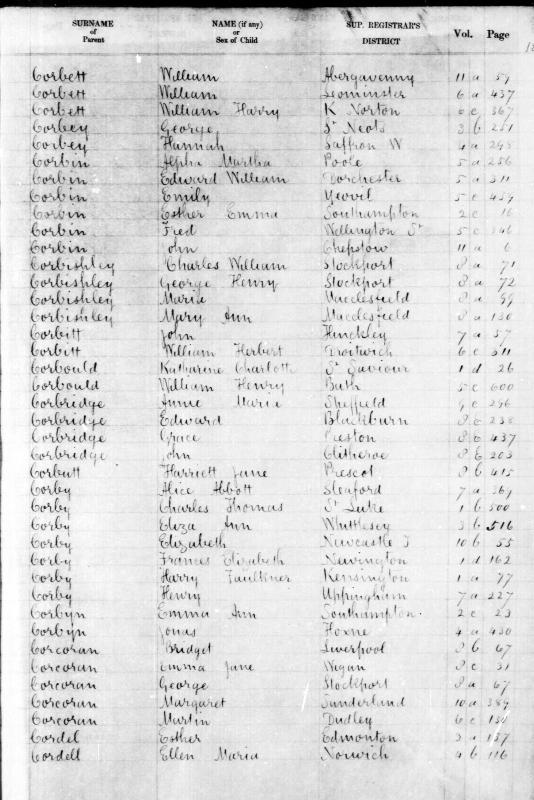 SURNAME of Parent NAME (if any) or Sex of Child SUP. REGISTRAR'S DISTRICT Vol. Page
Corbett William Abergavenny 11 a 59
Corbett William Leominster 6 a 437
Corbett William Harry K Norton 6 c 367
Corbey George St Neots 3 b 251
Corbey Hannah Saffron W 4 a
Corbin Alpha Martha Poole 5 a 256
Corbin Edward William Dorchester 5 a 311
Corbin Emily Yeovil 5 c 459
Corbin Esther Emma Southampton 2 c 16
Corbin Fred Wellington St 5 c 346
Corbin John Chepstow 11 a 6
Corbishley Charles William Stockport 8 a 71
Corbishley George Henry Stockport 8 a 72
Corbishley Maria Macclesfield 8 a 99
Corbishley Mary Ann Macclesfield 8 a 130
Corbitt John Hinckley 7 a 57
Corbitt William Herbert Droitwich 6 c 311
Corbould Katharine Charlotte St Saviour 1 d 26
Corbould William Henry Bath 5 c 600
Corbridge Annie Maria Sheffield 9 c 296
Corbridge Edward Blackburn 8 e 238
Corbridge Grace Preston 8 e 437
Corbridge John Clitheroe 8 e 203
Corbutt Harriett Jane Prescot 8 b 415
Corby Alice Abbott Sleaford 7 a 369
Corby Charles Thomas St Luke 1 b 500
Corby Eliza Ann Whittlesey 3 b 516
Corby Elizabeth Newcastle T 10 b 55
Corby Frances Elizabeth Newington 1 d 162
Corby Harry Faulkner Kensington 1 a 77
Corby Henry Uppingham 7 a 227
Corbyn Emma Ann Southampton. 2 c 23
Corbyn Jonas Hoxne 4 a 430
Corcoran Bridget Liverpool 8 b 67
Corcoran Emma Jane Wigan 8 c 31
Corcoran George Stockport 8 a 67
Corcoran Margaret Sunderland 10 a 389
Corcoran Martin Dudley 6 c 130
Cordel Esther Edmonton 3 a 137
Cordell Ellen Maria Norwich 4 b 116